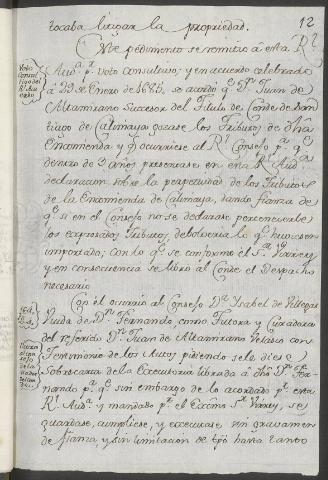 12
tocaba litigar la propriedad.
Este pedimento se remitio à esta Rl
Voto Consultivo del Rl. Acuerdo
Auda. pr. Voto Consultivo; y en acuerdo celebrado
à 23 de Enero de 1685. se acordó qe. Dn. Juan de
Altamirano Sucesor del Titulo de Conde de San-
tiago de Calimaya gozase los Tributos de dha
Encomienda y qe ocurriese al Rl. Consejo pa. qe
dentro de 3 años presentase en esta Rl. Auda.
declaracion sobre la perpetuidad de los Tributos
de la Encomienda de Calimaya, dando fianza de
qe. si en el Consejo no se declarase pertenecerle
los expresados Tributos, debolveria lo qe. huviesen
importado; con lo qe. se conformo el Sr. Virrey
y en consecuencia se libró al Conde el Despacho
necesario
Con èl ocurrió al Consejo Da. Ysabel de Villegas
Viuda de Dn. Fernando, como Tutora y Curadora
del referido Dn. Juan de Altamirano Velasco con
Testimonio de los Autos, pidiendo se le diese
Sobrecarta de la Executoria librada à dho Dn. Fer-
nando pa. qe. sin embargo de lo acordado pr. esta
Rl. Auda. y mandado pr. el Excmo Sr. Virrey, se
guardase, cumpliese, y executase sin gravamen
de fianza, y sin limitacion de tpo hasta tanto